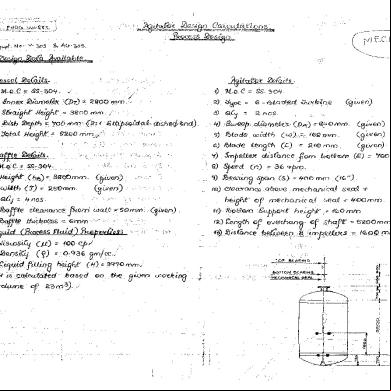 Agitator Design Calculations
Process Design
MEC
Design Data Available
Details.
M.O.C = SS-304.
Inner Diameter (DT) = 2800 mm.
Straight Height = 3800 mm.
Dish Depth = 700 mm (2:1 Ellipsoidal dished end).
Total Height = 5200 mm.
Baffle Details.
M.O.C = SS-304.
Height = 3800 mm. (given)
width = 250 mm. (given)
Qty = 4 nos.
Baffle clearance from wall = 50 mm. (given)
Baffle thickness = 6 mm.
Liquid (Process Fluid) Properties.
Viscosity (μ) = 100 cp.
Density = 0.936 gm/cc.
Liquid filling height (H) = 3990 mm.
is calculated based on the given working
volume of 23 m³).
Agitator Details.
1) M.O.C = SS 304
2) Type = 6-Bladed Turbine (given)
3) Qty = 2 nos.
4) Sweep diameter (DA) = 840 mm. (given)
5) Blade width (W) = 168 mm. (given)
6) Blade length (L) = 210 mm. (given)
7) Impeller distance from bottom (E) = 700
8) Speed (n) = 36 rpm.
9) Bearing span (S) = 400 mm (16")
10) Clearance above mechanical seal +
height of mechanical seal = 400 mm.
11) Bottom support height = 120 mm
12) Length of overhang of shaft = 5200 mm
13) Distance between 2 impellers = 1600 m
TOP BEARING
BOTTOM BEARING
MECHANICAL SEAL